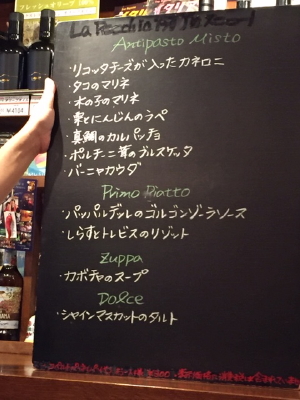 フレッシュオリーブ
Antipasto Misto
・リコッタチーズが入ったカネロニ
・タコのマリネ
・木の子のマリネ
・栗とにんじんのラペ
・真鯛のカルパッチョ
・ポルチーニ茸のブルスケッタ
・バーニャカウダ
Primo Piatto
・パッパルデッレのゴルゴンゾーラソース
・しらすとトレビスのリゾット
Zuppa
・カボチャのスープ
Dolce
・シャインマスカットのタルト